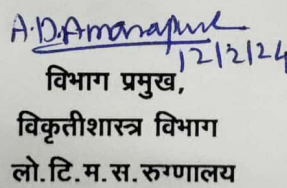 A.D.Amarapurk
12/2/24
विभाग प्रमुख,
विकृतीशास्त्र विभाग
लो.टि.म.स.रुग्णालय